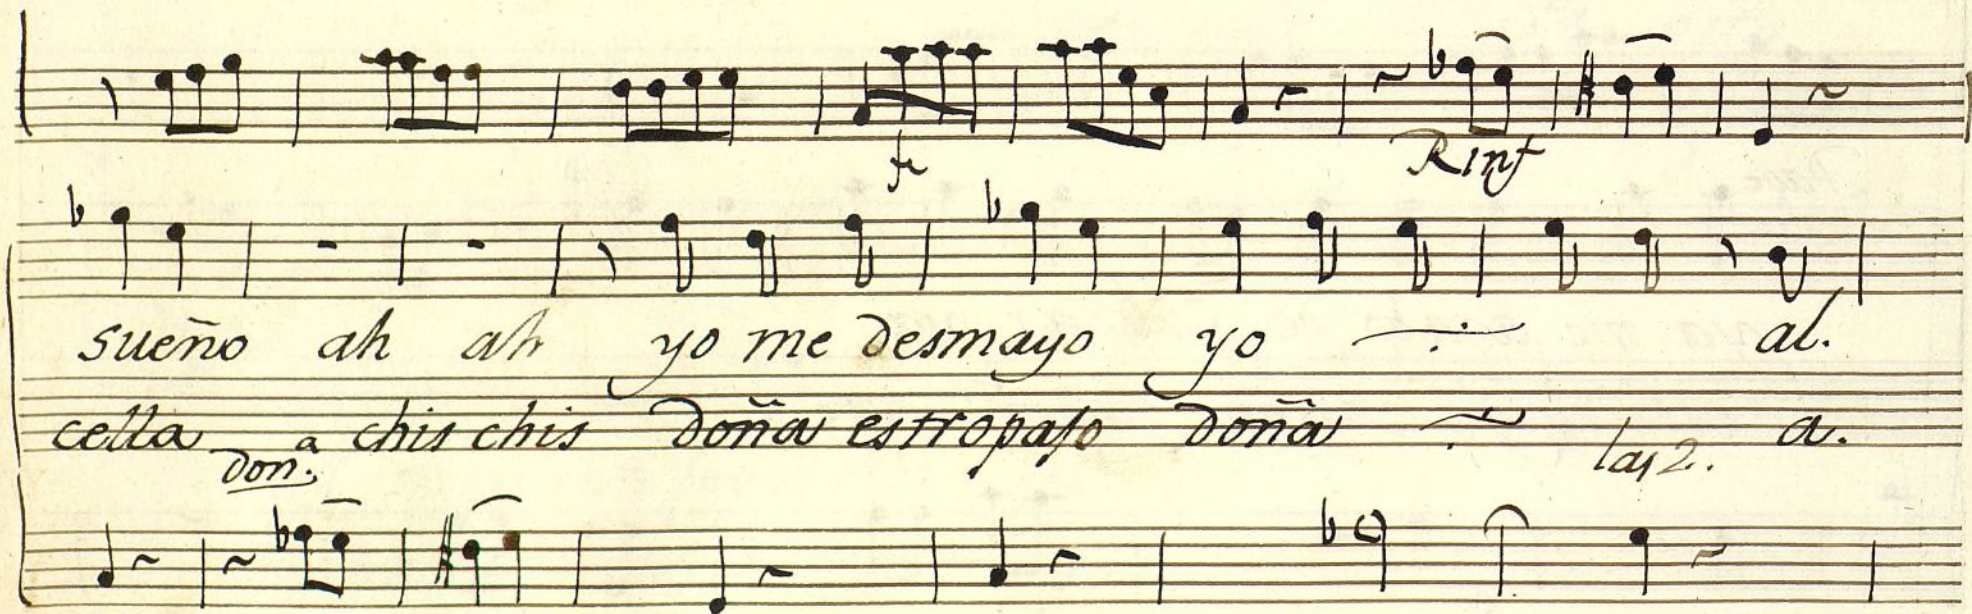 fe
Rinf
sueño ah ah yo me desmayo yo al.
cella a chis chis doña estropaso doña a.
don.
las 2.